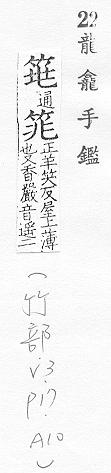 22 龍龕手鑑
𥮾通笓正羊笑反屋上薄
也又香嚴音遥二
(竹部.V3.
P17.
A10)